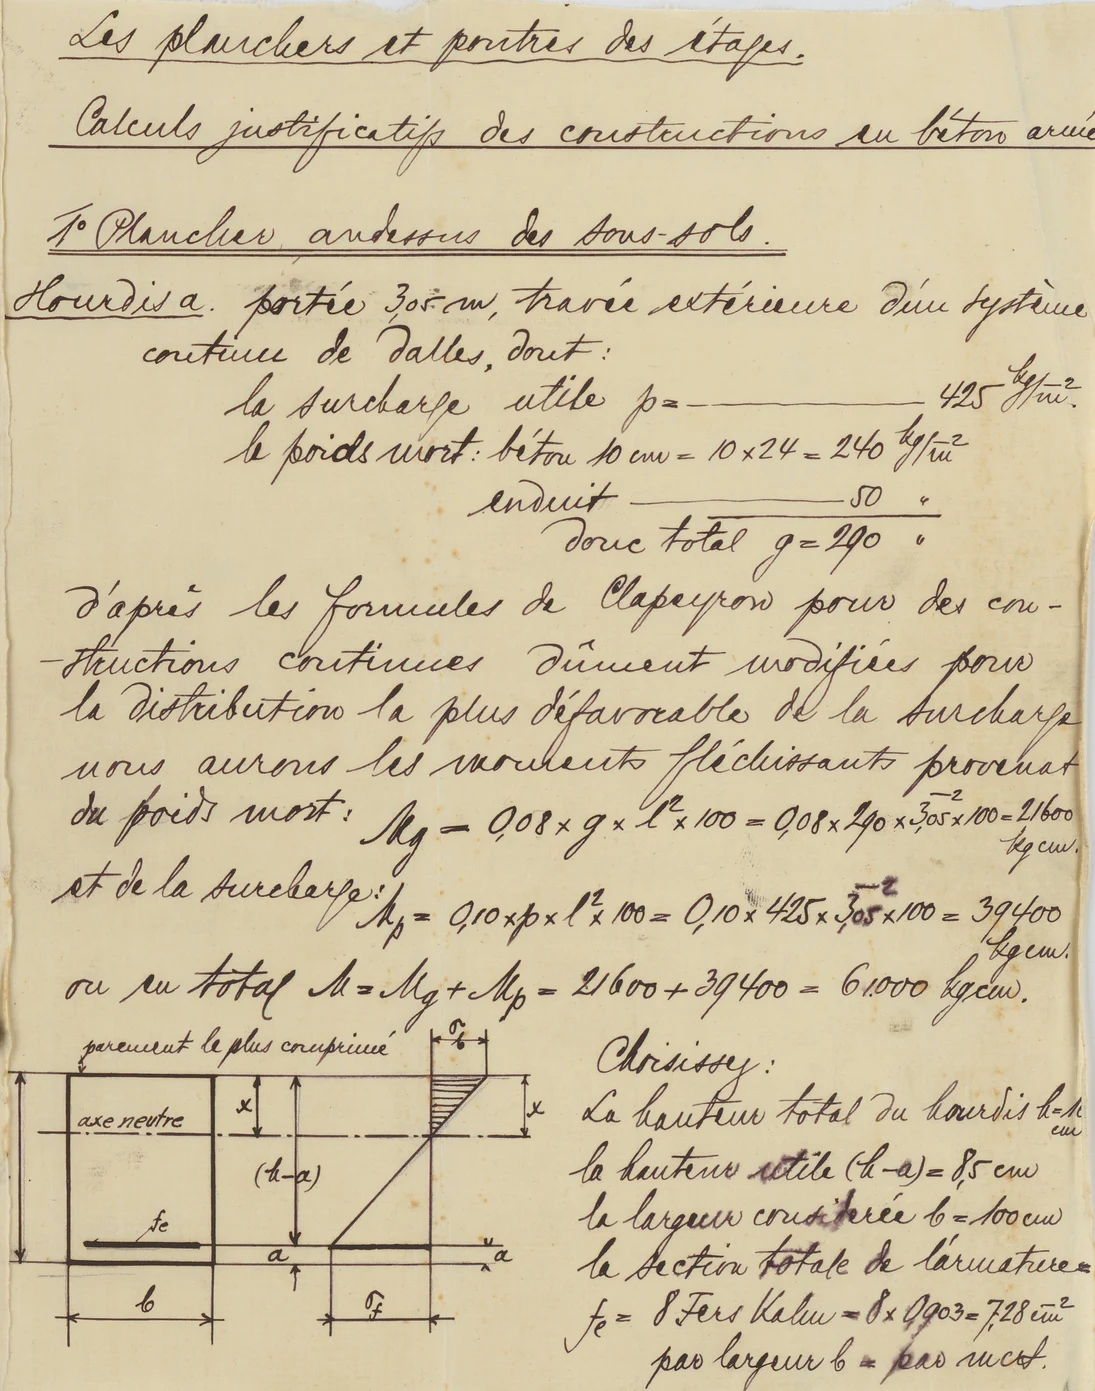 Les planchers et poutres des étages.
Calculs justificatifs des constructions en béton armé
1° Plancher audessus des sous-sols.
Hourdis a. portée 3,05 m, travée extérieure d'un système
continu de dalles, dont:
la surcharge utile p= 425 kg/m².
le poids mort: béton 10 cm = 10 x 24 = 240 kg/m²
enduit 50 "
donc total g = 290 "
d'après les formules de Clapeyron pour des con-
-structions continues dûment modifiées pour
la distribution la plus défavorable de la surcharge
nous aurons les moments fléchissants provenat
du poids mort: Mg = 0,08 x g x l² x 100 = 0,08 x 290 x 3,05² x 100 = 21600
kgcm.
et de la surcharge: Mp = 0,10 x p x l² x 100 = 0,10 x 425 x 3,05² x 100 = 39400
kgcm.
ou en total M = Mg + Mp = 21600 + 39400 = 61000 kgcm.
parement le plus comprimé
σb
axe neutre
x
x
(h-a)
fe
a
a
b
σf
Choisissez:
La hauteur total du hourdis h=
cm
la hauteur utile (h-a) = 8,5 cm
la largeur considérée b = 100 cm
la section totale de l'armature =
fe = 8 Fers Kahn = 8 x 0,903 = 7,28 cm²
par largeur b = par mert.